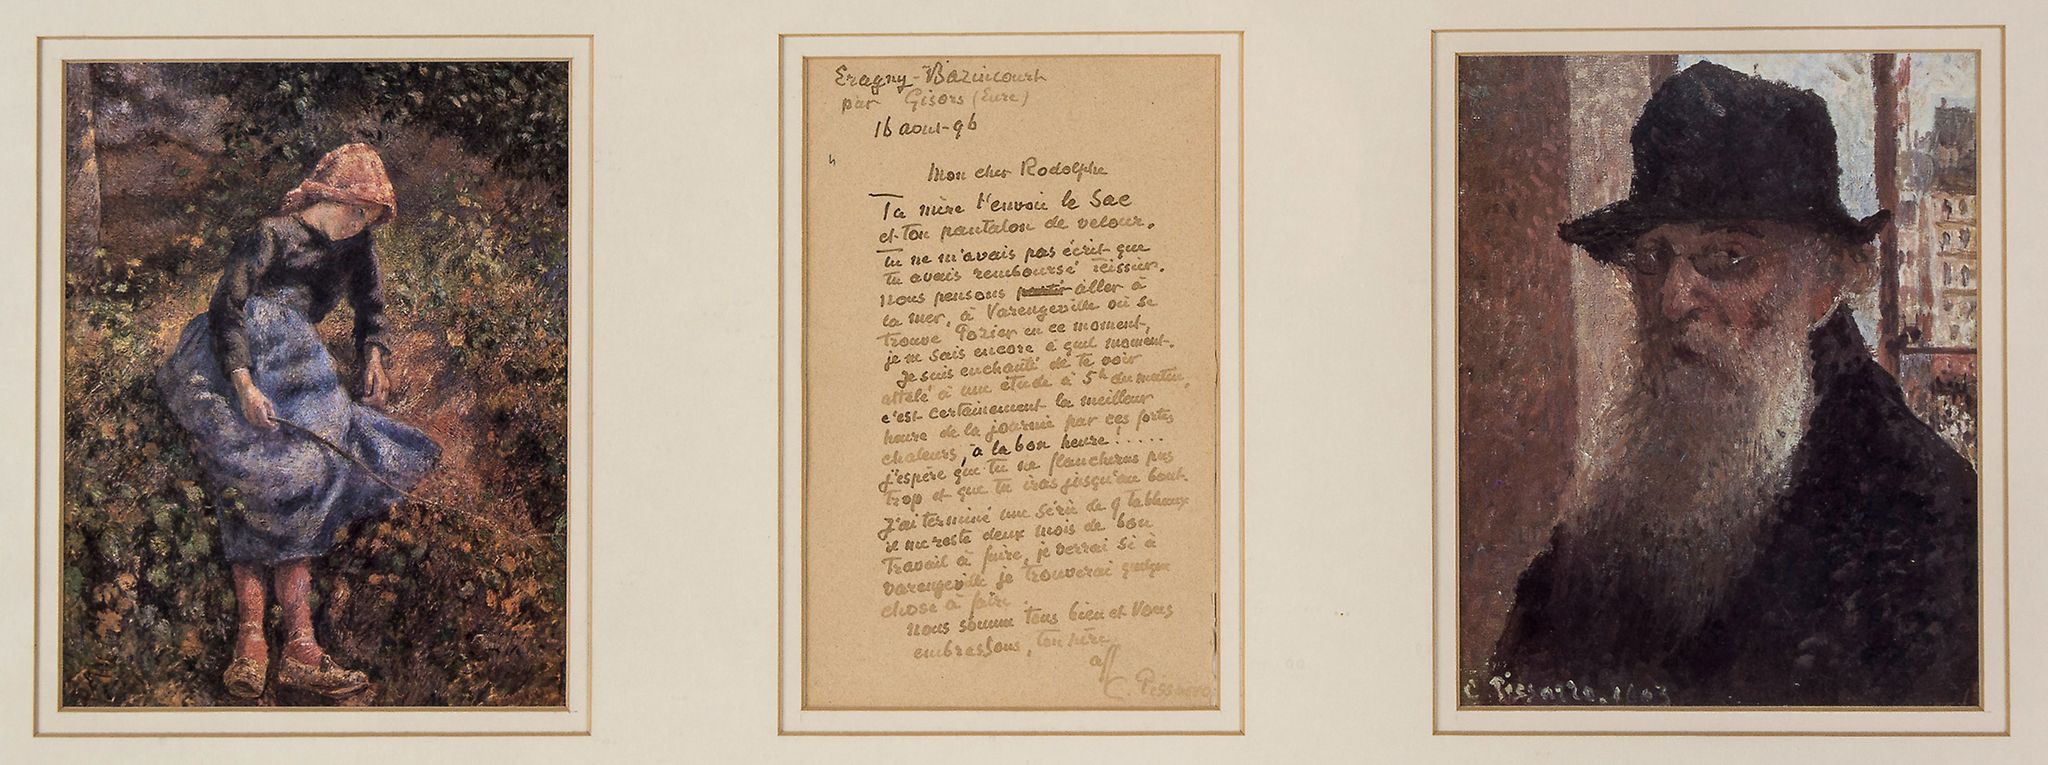 Eragny-Bazincourt
par Gisors (Eure)
16 aout-96
Mon cher Rodolphe
Ta mère t'envoie le Sac
et ton pantalon de velour.
Tu ne m'avais pas écrit que
tu avais remboursé Teissier.
nous pensons aller à
la mer, à Varengeville où se
trouve Pozier en ce moment,
je ne sais encore à quel moment.
Je suis enchanté de te voir
attelé à une étude à 5h du matin,
c'est certainement la meilleur
heure de la journée par ces fortes
chaleurs, à la bon heure! .....
j'espère que tu ne flancheras pas
trop et que tu iras jusqu'au bout
J'ai terminé une série de 9 tableaux
il me reste deux mois de bon
travail à faire, je verrai si à
varengeville je trouverai quelque
chose à faire.
Nous somme tous bien et Vous
embrassons, ton père
aff
C. Pissarro
C. Pissarro. 1903